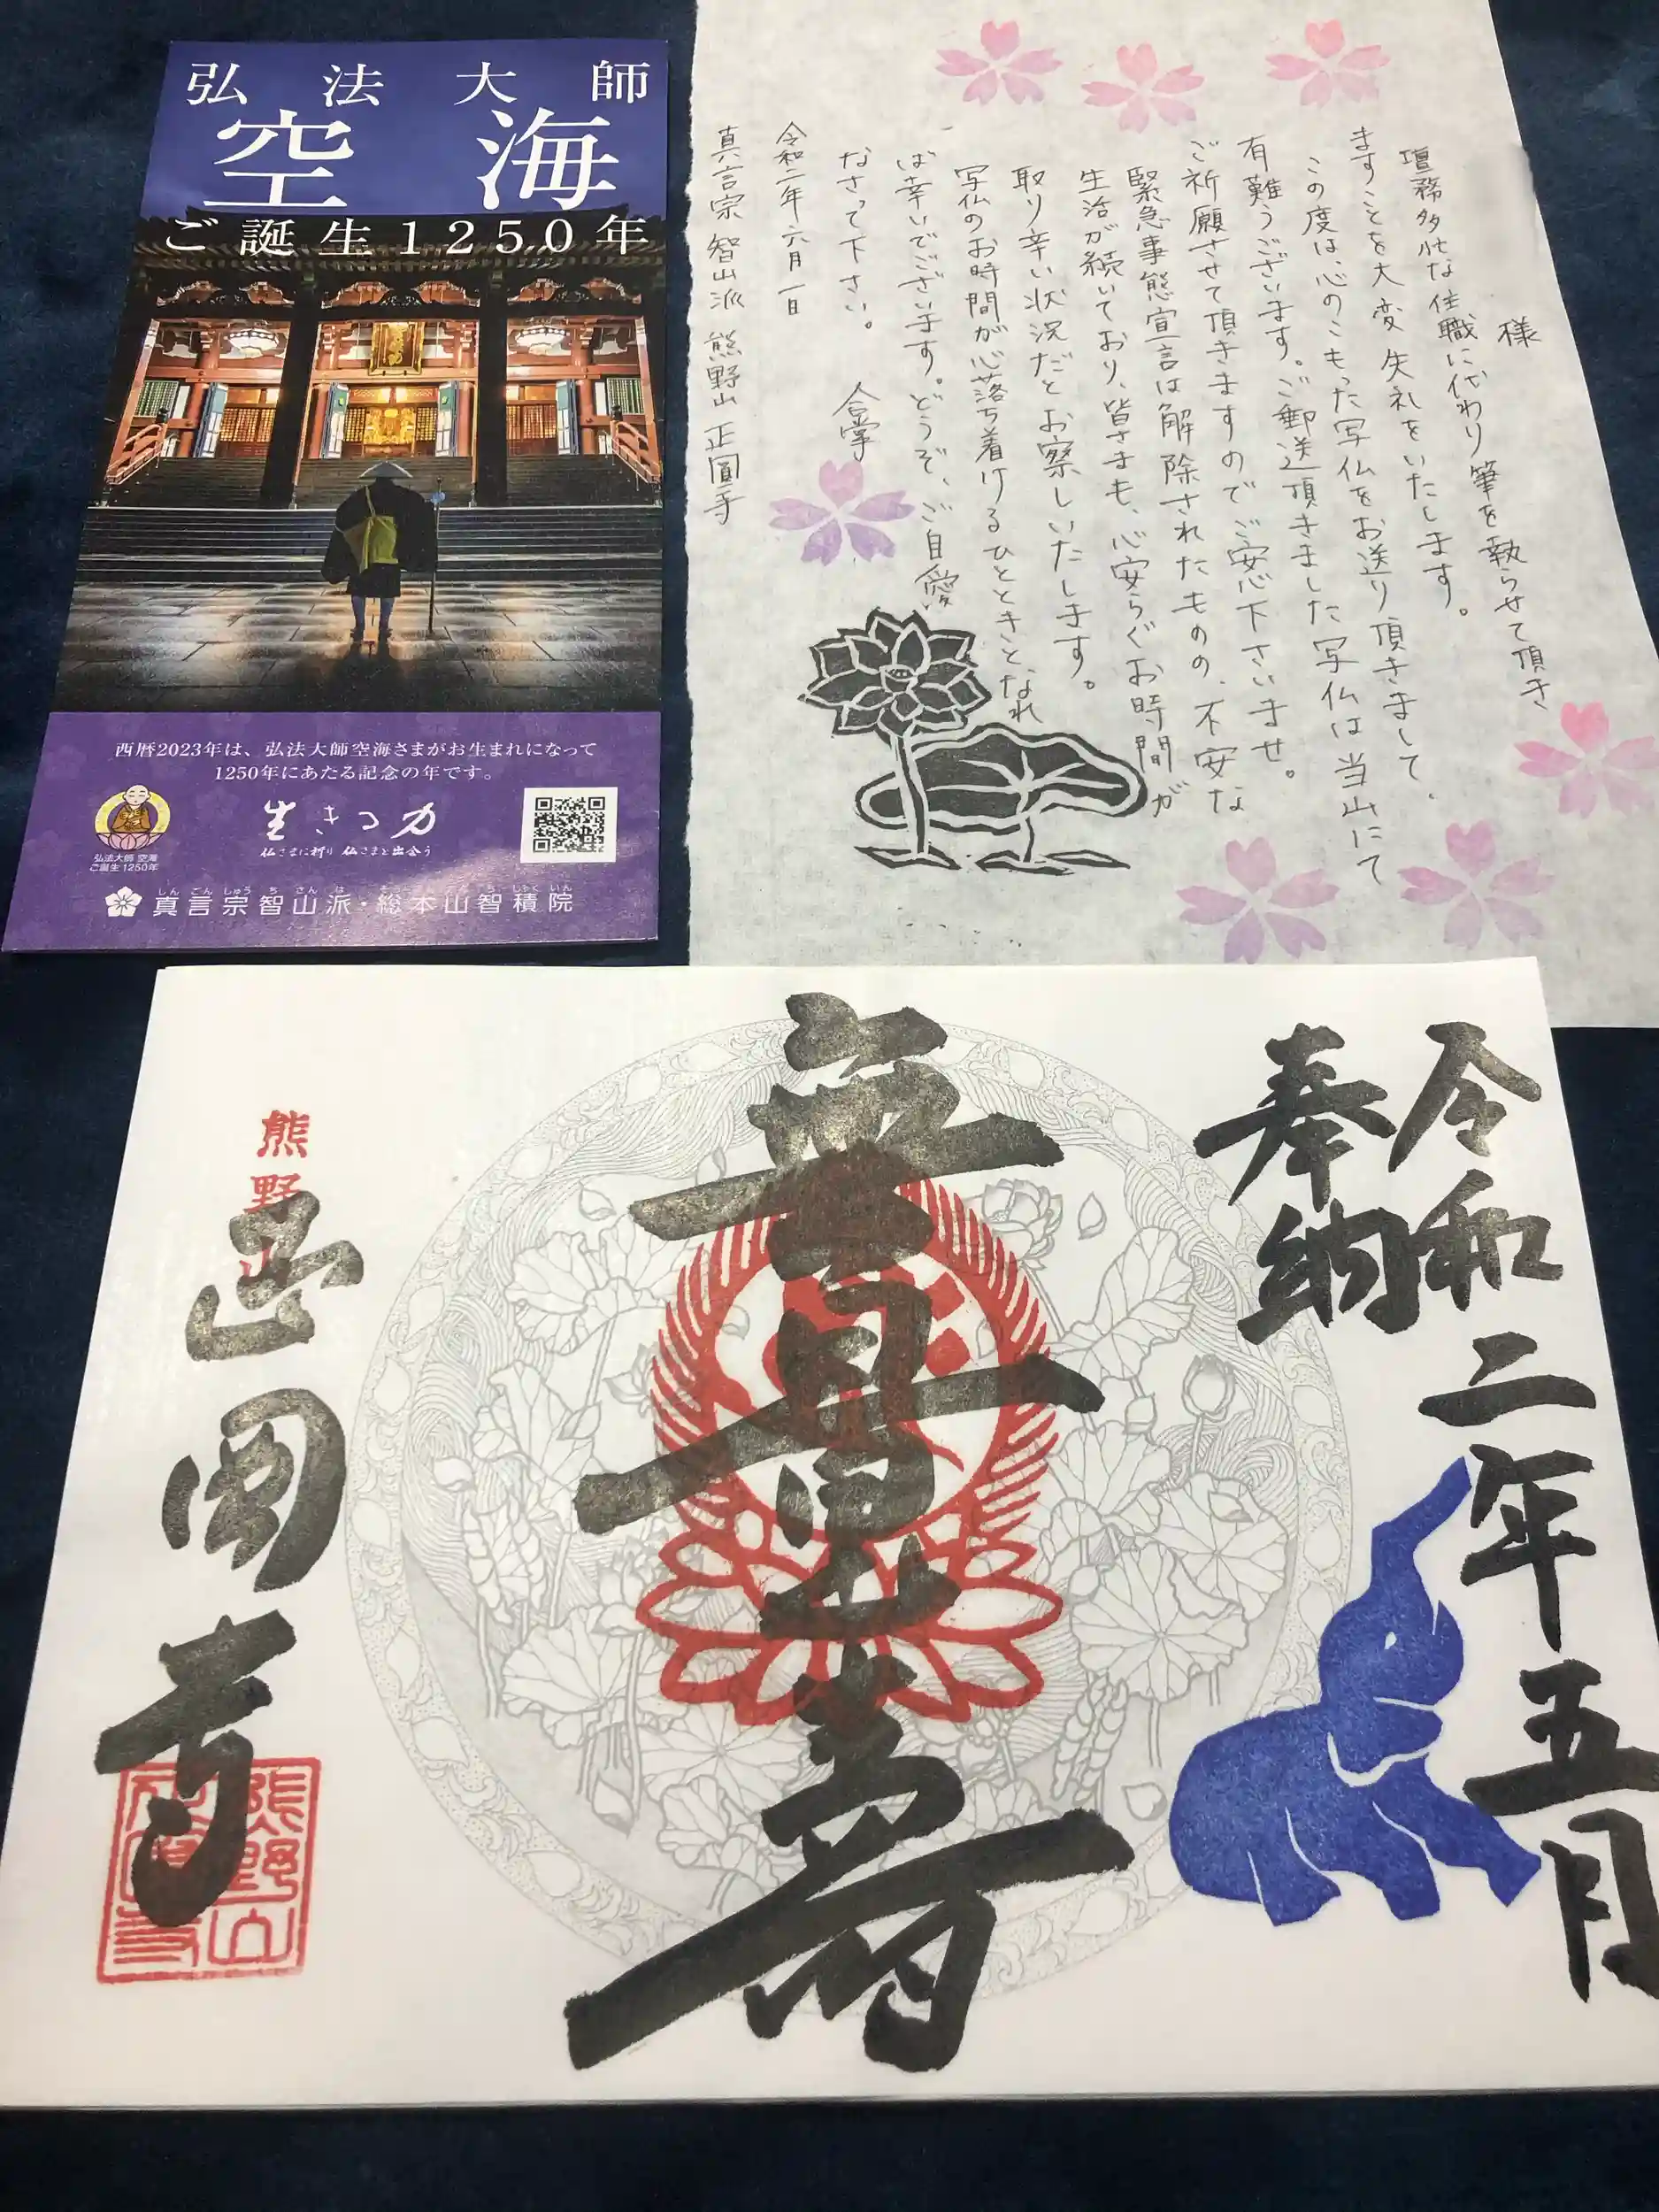 弘法大師
空海
ご誕生1250年
西暦2023年は、弘法大師空海さまがお生まれになって
1250年にあたる記念の年です。
生きる力
仏さまに祈り 仏さまと出会う
弘法大師 空海
ご誕生1250年
しんごんしゅうちさんは そうほんざんちしゃくいん
真言宗智山派・総本山智積院
様
壇務多忙な住職に代わり筆を執らせて頂き
ますことを大変失礼をいたします。
この度は、心のこもった写仏をお送り頂きまして、
有難うございます。ご郵送頂きました写仏は当山にて
ご祈願させて頂きますのでご安心下さいませ。
緊急事態宣言は解除されたものの、不安な
生活が続いており、皆さまも、心安らぐお時間が
取り辛い状況だとお察しいたします。
写仏のお時間が心落ち着けるひとときと、なれ
ば幸いでございます。どうぞ、ご自愛
なさって下さい。
合掌
令和二年六月一日
真言宗 智山派 熊野山 正圓寺
令和二年五月
奉納
無量寿
熊野山
正圓寺